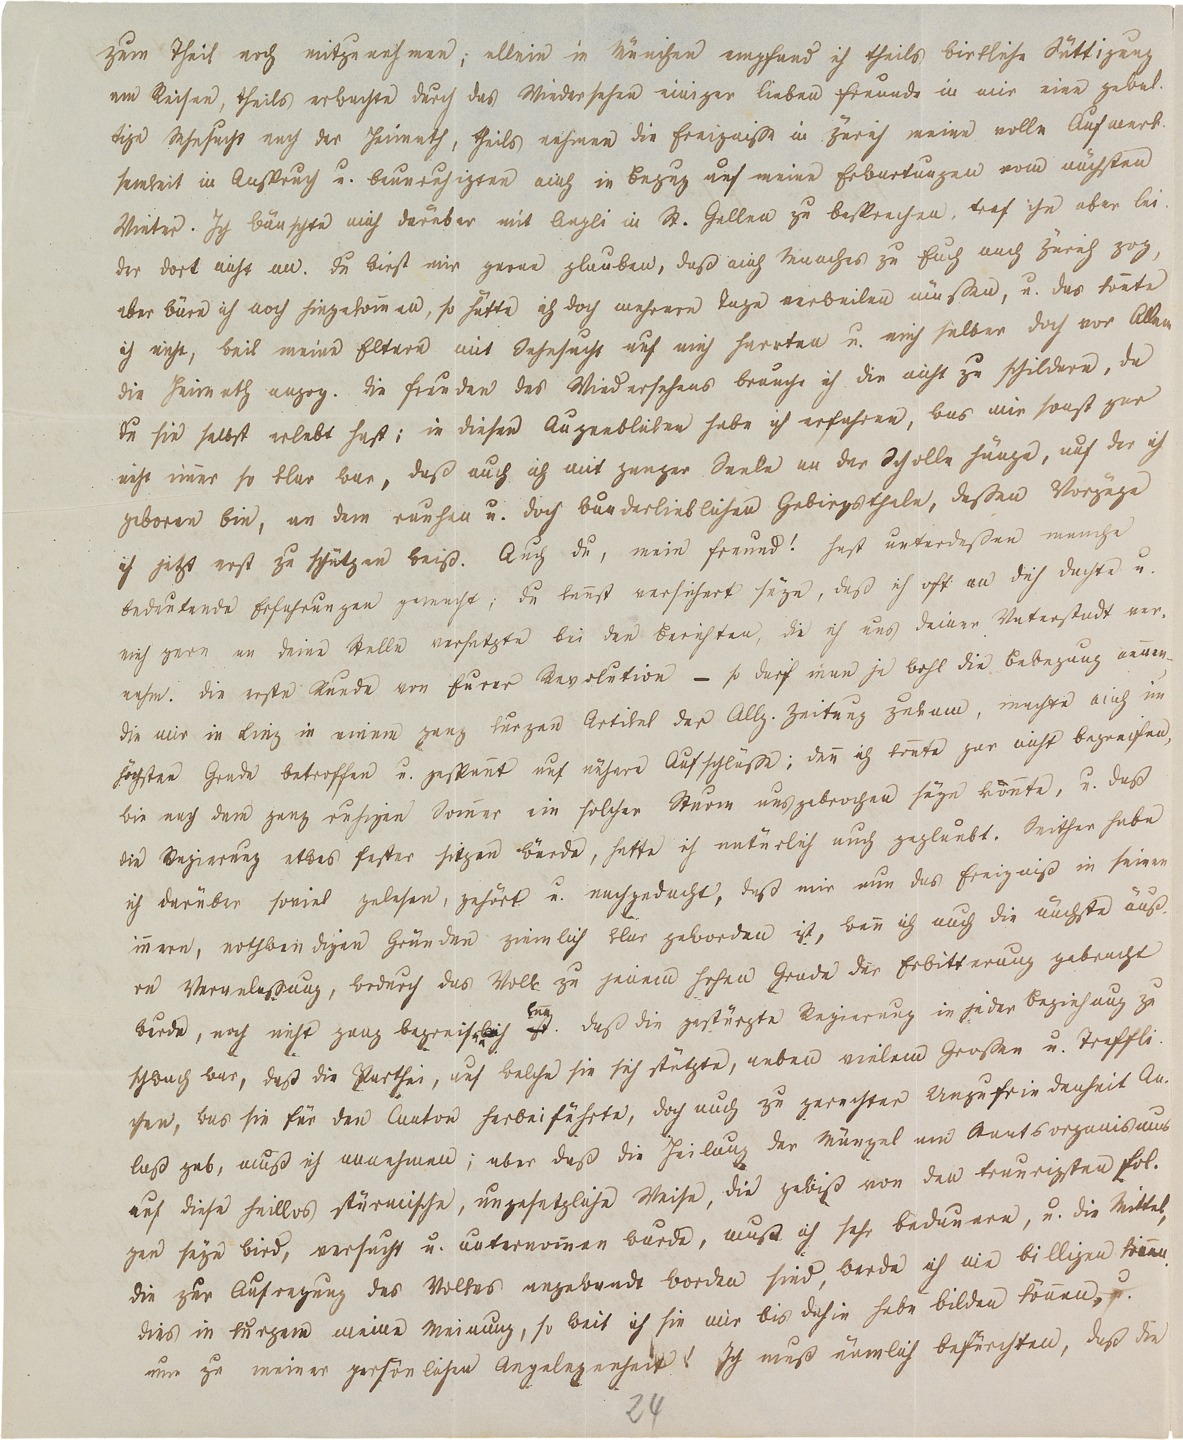 zum Theil noch mitzunehmen; allein in München empfand ich theils wirkliche Sättigung
am Reisen, theils erwachte durch das Wiedersehen einiger lieben Freunde in mir eine gewal-
tige Sehnsucht nach der Heimath, theils nahmen die Ereignisse in Zürich meine volle Aufmerk-
samkeit in Anspruch u. beunruhigten mich in Bezug auf meine Erwartungen vom nächsten
Winter. Ich wünschte mich darüber mit in St. Gallen zu besprechen, traf ihn aber lei-
der dort nicht an. Du wirst mir gerne glauben, daß mich Manches zu Euch nach Zürich zog,
aber wäre ich noch hingekommen, so hätte ich doch mehrere Tage verweilen müssen, u. das konnte
ich nicht, weil meine Eltern mit Sehnsucht auf mich harrten u. mich selber doch vor Allem
die Heimath anzog. Die Freuden des Wiedersehens brauche ich dir nicht zu schildern, da
Du sie selbst erlebt hast; in diesen Augenblicken habe ich erfahren, was mir sonst gar
nicht immer so klar war, daß auch ich mit ganzer Seele an der Scholle hänge, auf der ich
geboren bin, an dem rauhen u. doch wunderlieblichen Gebirgsthale, dessen Vorzüge
ich jetzt erst zu schätzen weiß. Auch du, mein Freund! hast unterdessen manche
bedeutende Erfahrungen gemacht; du kannst versichert seyn, daß ich oft an dich dachte u.
mich gern an deine Stelle versetzte bei den Berichten, die ich aus deiner Vaterstadt ver-
nahm. Die erste Kunde von Eurer Revolution – so darf man ja wohl die Bewegung nennen –
die mir in Linz in einem ganz kurzen Artikel der Allg. Zeitung zukam, machte mich im
höchsten Grade betroffen u. gespannt auf nähere Aufschlüsse; denn ich konnte gar nicht begreifen,
wie nach dem ganz ruhigen Sommer ein solcher Sturm ausgebrochen seyn könnte, u. daß
die Regierung etwas fester sitzen würde, hatte ich natürlich auch geglaubt. Seither habe
ich darüber soviel gelesen, gehört u. nachgedacht, daß mir nun das Ereigniß in seinen
innern, nothwendigen Gründen ziemlich klar geworden ist, wenn ich auch die nächste äuß-
re Veranlassung, wodurch das Volk zu jenem hohen Grade der Erbitterung gebracht
wurde, noch nicht ganz begreifen kann. Daß die gestürzte Regierung in jeder Beziehung zu
schwach war, daß die Parthei, auf welche sie sich stützte, neben vielem Großen u. Treffli-
chen, was sie für den Canton herbeiführte, doch auch zu gerechter Unzufriedenheit An-
laß gab, muß ich annehmen; aber daß die Heilung der Mängel am Staatsorganismus
auf diese heillos stürmische, ungesetzliche Weise, die gewiß von den traurigsten Fol-
gen seyn wird, versucht u. unternommen wurde, muß ich sehr bedauern, u. die Mittel,
die zur Aufregung des Volkes angewandt worden sind, werde ich nie billigen können.
Dies in kurzem meine Meinung, so weit ich sie mir bis dahin habe bilden können, u.
nun zu meiner persönlichen Angelegenheit! Ich muß nämlich befürchten, daß die
24